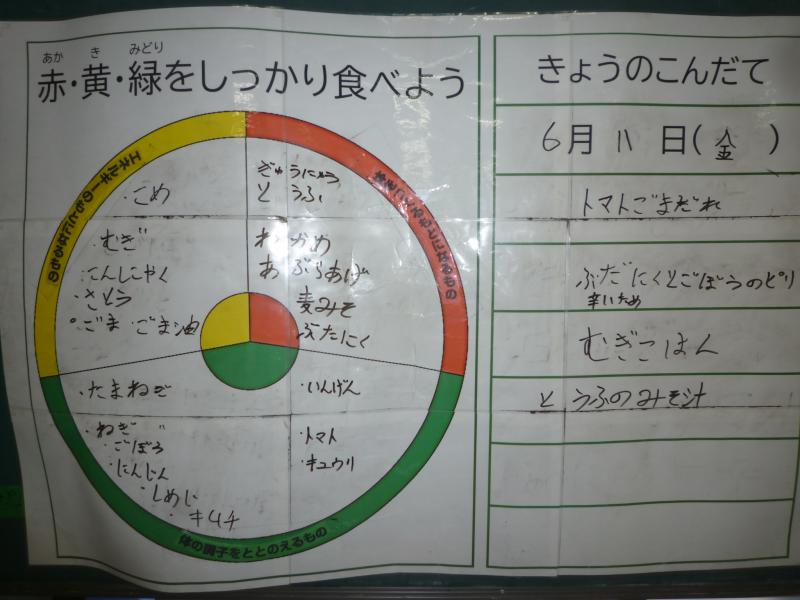 あか き みどり
赤・黄・緑をしっかり食べよう
エネルギーのもとになるもの
・こめ
・むぎ
・こんにゃく
・さとう
・ごま ごま油
体をつくるもとになるもの
ぎゅうにゅう
とうふ
わかめ
あぶらあげ
麦みそ
ぶたにく
・たまねぎ
・ねぎ
・ごぼう
・にんじん
・しめじ
・キムチ
・いんげん
・トマト
・キュウリ
体の調子をととのえるもの
きょうのこんだて
6月 11 日(金)
トマトごまだれ
ぶだにくとごぼうのピリ
辛いため
むぎごはん
とうふのみそ汁